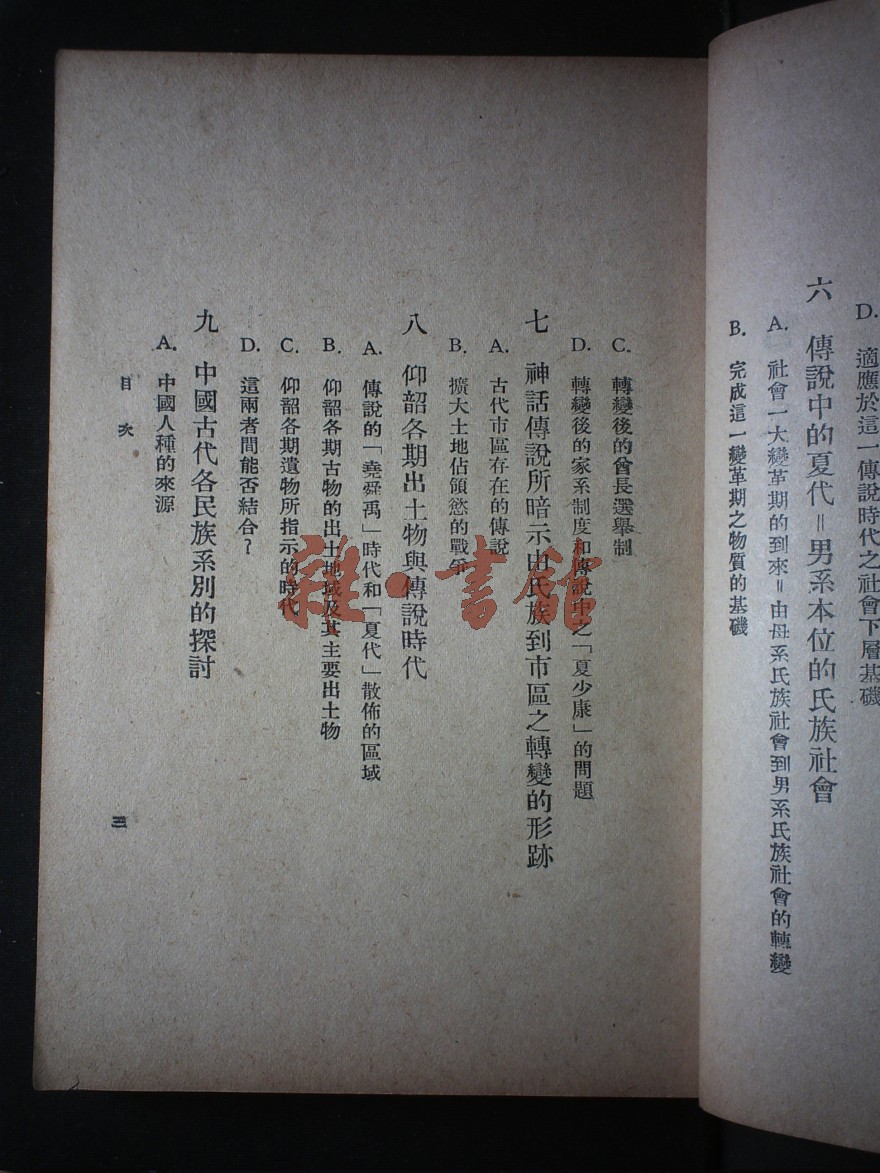 D. 適應於這一傳說時代之社會下層基礎
六 傳說中的夏代＝男系本位的氏族社會
A. 社會一大變革期的到來＝由母系氏族社會到男系氏族社會的轉變
B. 完成這一變革期之物質的基礎
C. 轉變後的酋長選舉制
D. 轉變後的家系制度和傳說中之「夏少康」的問題
七 神話傳說所暗示由氏族到市區之轉變的形跡
A. 古代市區存在的傳說
B. 擴大土地佔領慾的戰爭
八 仰韶各期出土物與傳說時代
A. 傳說的「堯舜禹」時代和「夏代」散佈的區域
B. 仰韶各期古物的出土地域及其主要出土物
C. 仰韶各期遺物所指示的時代
D. 這兩者間能否結合？
九 中國古代各民族系別的探討
A. 中國人種的來源
目次
三
雜·書館